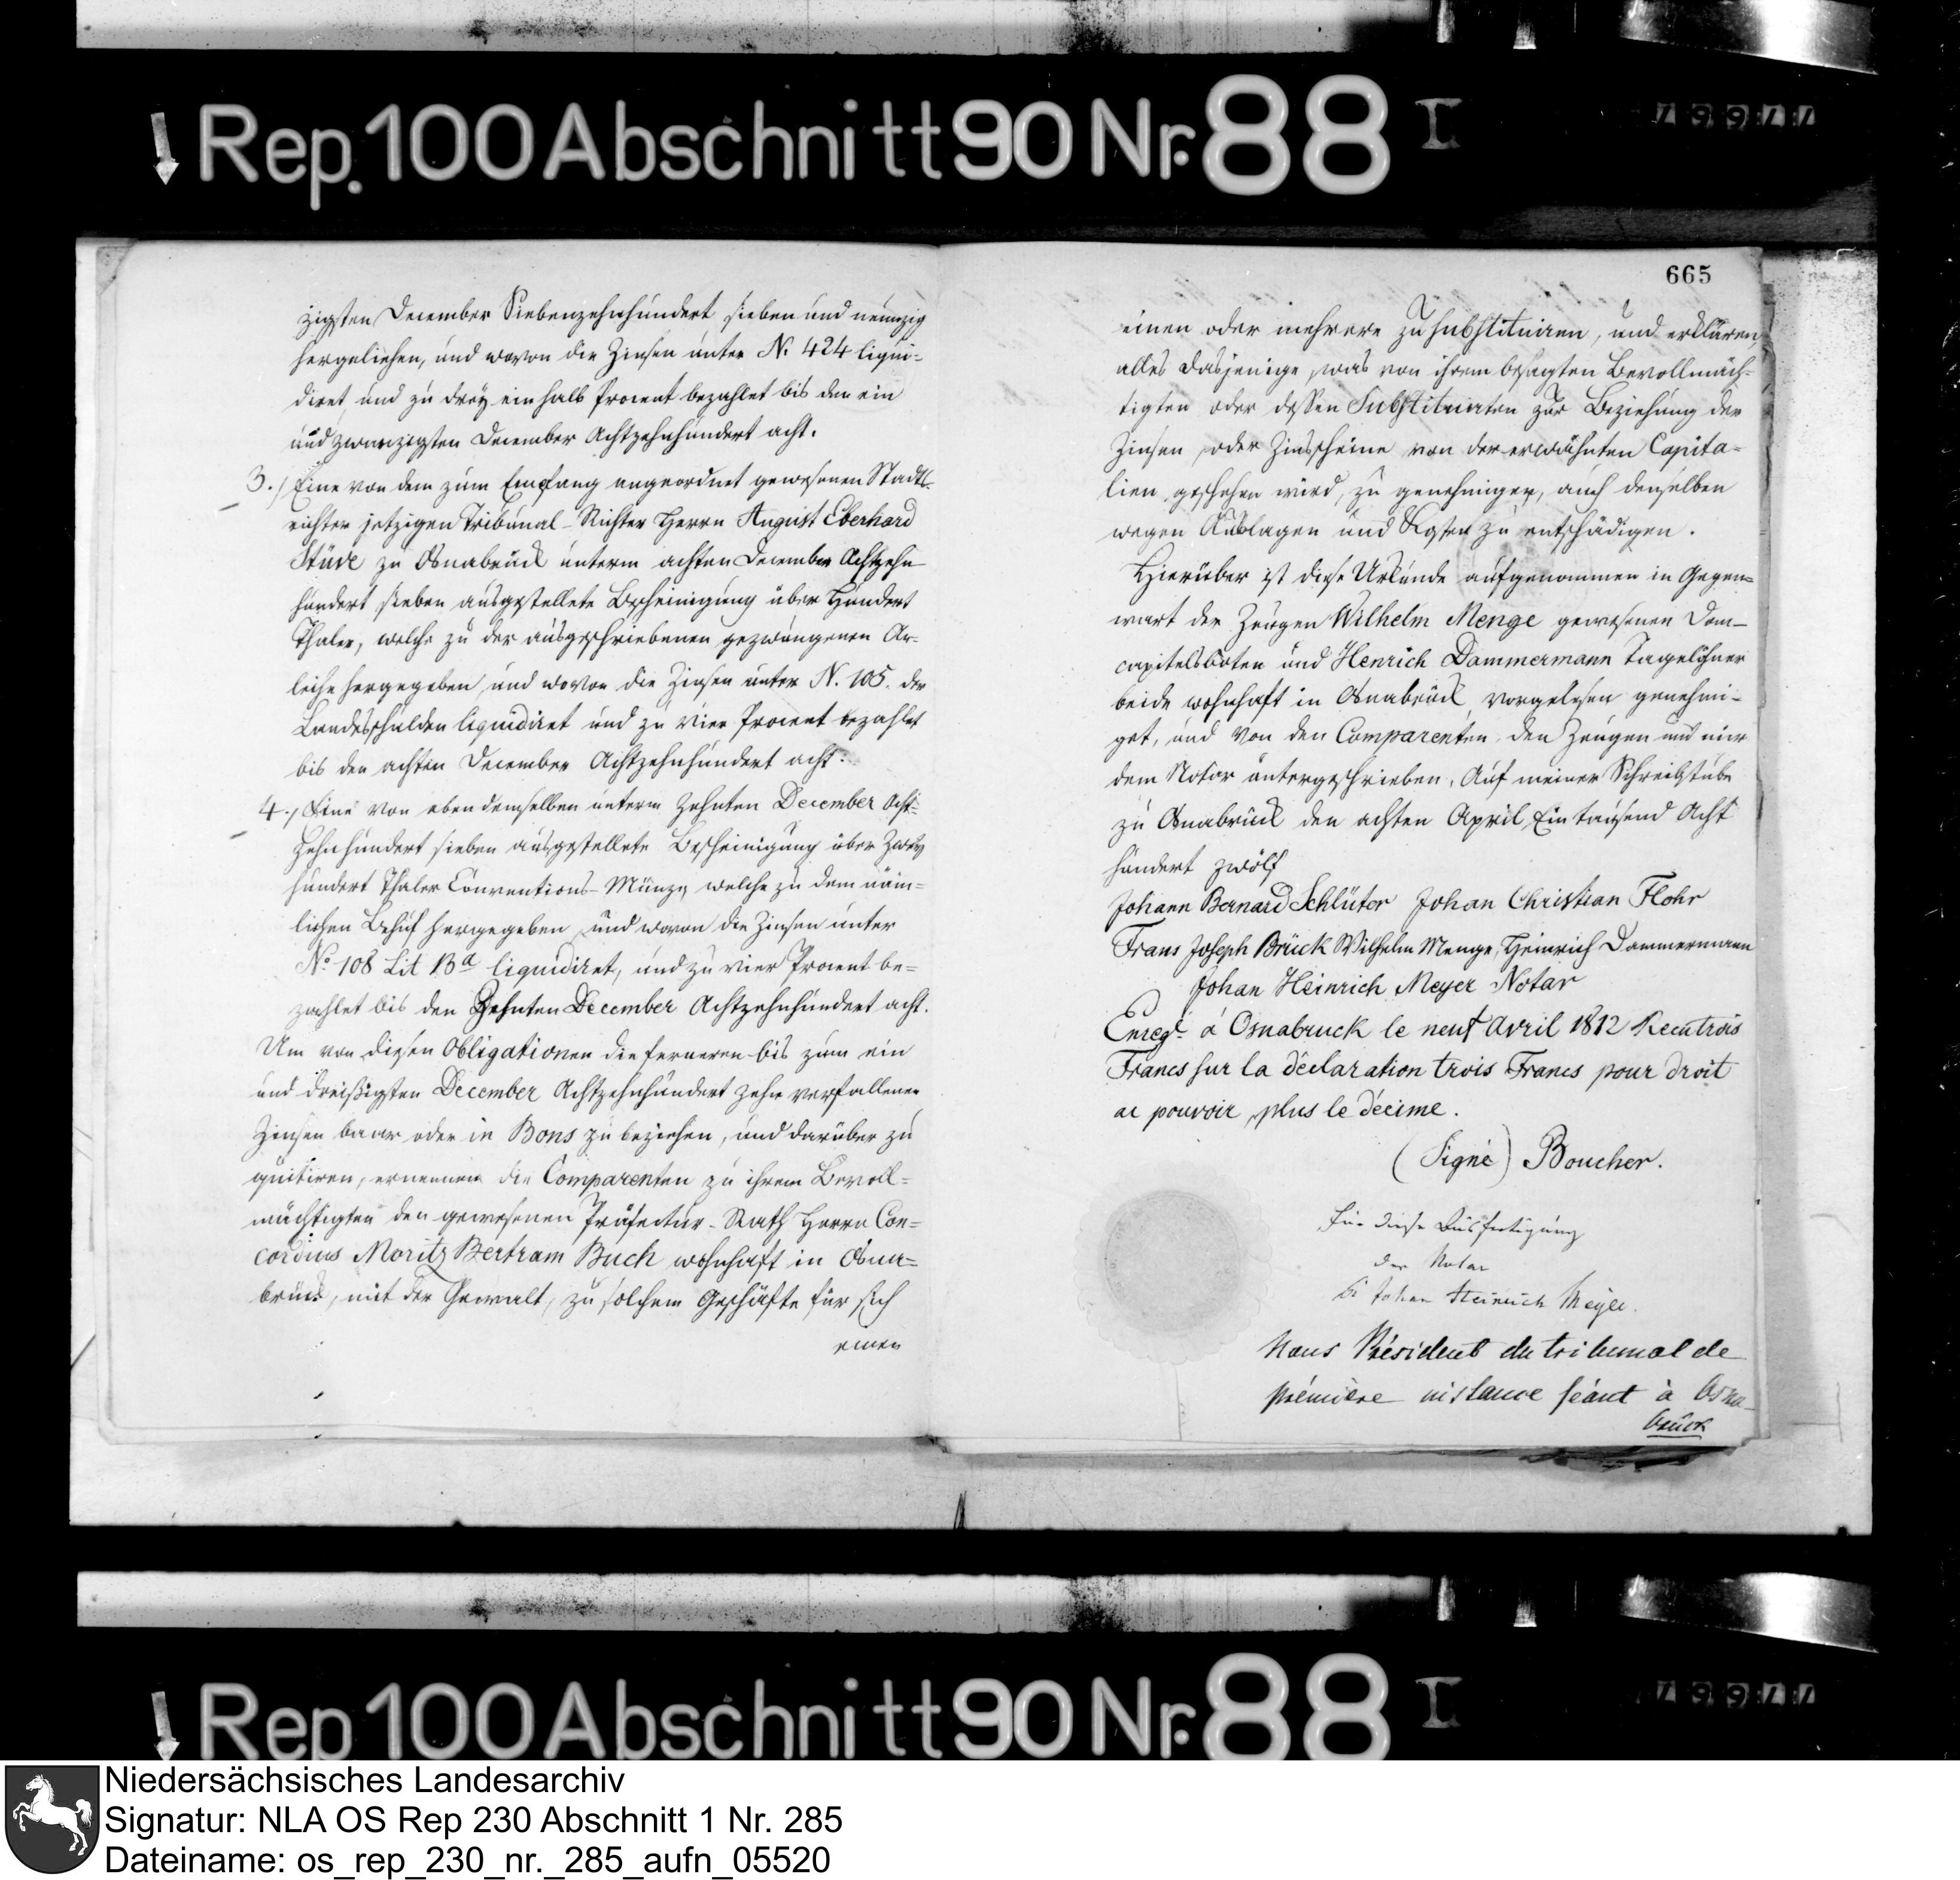 Rep. 100 Abschnitt 90 Nr. 88 I
77667
zigsten December Siebenzehnhundert sieben und neunzig
hergeliehen, und wovon die Zinsen unter N. 424 liqui-
diret, und zu drey einhalb Procent bezahlet bis den ein
und zwanzigsten December Achtzehnhundert acht.
3.) Eine von dem zum Empfang angeordnet gewesenen Stadt-
richter jetzigen Tribunal-Richter Herrn August Eberhard
Stüve zu Osnabrück unterm achten December Achtzehn-
hundert sieben ausgestellete Bescheinigung über Hundert
Thaler, welche zu der ausgeschriebenen gezwungenen An-
leihe hergegeben, und wovon die Zinsen unter N. 105. der
Landesschulden liquidiret und zu vier Procent bezahlet
bis den achten December Achtzehnhundert acht.
4.) Eine von eben demselben unterm Zehnten December Acht-
zehnhundert sieben ausgestellete Bescheinigung über Zwey
hundert Thaler Conventions-Münze, welche zu dem näm-
lichen Behuf hergegeben, und wovon die Zinsen unter
No 108 Lit Ba liquidiret, und zu vier Procent be-
zahlet bis den Zehnten December Achtzehnhundert acht.
Um von diesen Obligationen die ferneren bis zum ein
und dreißigsten December Achtzehnhundert zehn verfallenen
Zinsen baar oder in Bons zu beziehen, und darüber zu
quitiren, ernennen die Comparenten zu ihrem Bevoll-
mächtigten den gewesenen Präfectur-Rath Herrn Con-
cordius Moritz Bertram Buch wohnhaft in Osna-
brück, mit der Gewalt, zu solchem Geschäfte für sich
einen
665
einen oder mehrere zu substituiren, und erklären,
alles dasjenige, was von ihrem besagten Bevollmäch-
tigten oder dessen Substituirten zur Beziehung der
Zinsen oder Zinsscheine von den erwähnten Capita-
lien geschehen wird, zu genehmigen, auch denselben
wegen Auslagen und Kosten zu entschädigen.
Hierüber ist diese Urkunde aufgenommen in Gegen-
wart der Zeugen Wilhelm Menge gewesenen Dom-
capitelsboten und Henrich Dammermann Tagelöhner
beide wohnhaft in Osnabrück, vorgelesen genehmi-
get, und von den Comparenten den Zeugen und mir
dem Notar untergeschrieben. Auf meiner Schreibstube
zu Osnabrück den achten April, Ein tausend Acht
hundert zwölf
Johann Bernard Schlüter Johan Christian Flohr
Frans Joseph Brück Wilhelm Menge, Heinrich Dammermann
Johan Heinrich Meyer Notar
Enregé á Osnabruck le neuf Avril 1812 Recu trois
Francs sur la déclaration trois Francs pour droit
de pouvoir, plus le décime.
(Signé) Boucher.
Für diese Ausfertigung
der Notar
Johan Heinrich Meyer.
Nous Président du tribunal de
première instance séant à Osna-
brück
Rep. 100 Abschnitt 90 Nr. 88 I
77667
Niedersächsisches Landesarchiv
Signatur: NLA OS Rep 230 Abschnitt 1 Nr. 285
Dateiname: os_rep_230_nr._285_aufn_05520